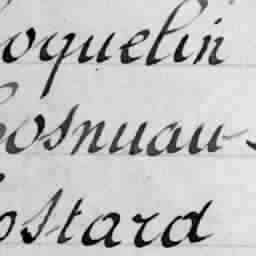 Coquelin
Cosnuau
Costard